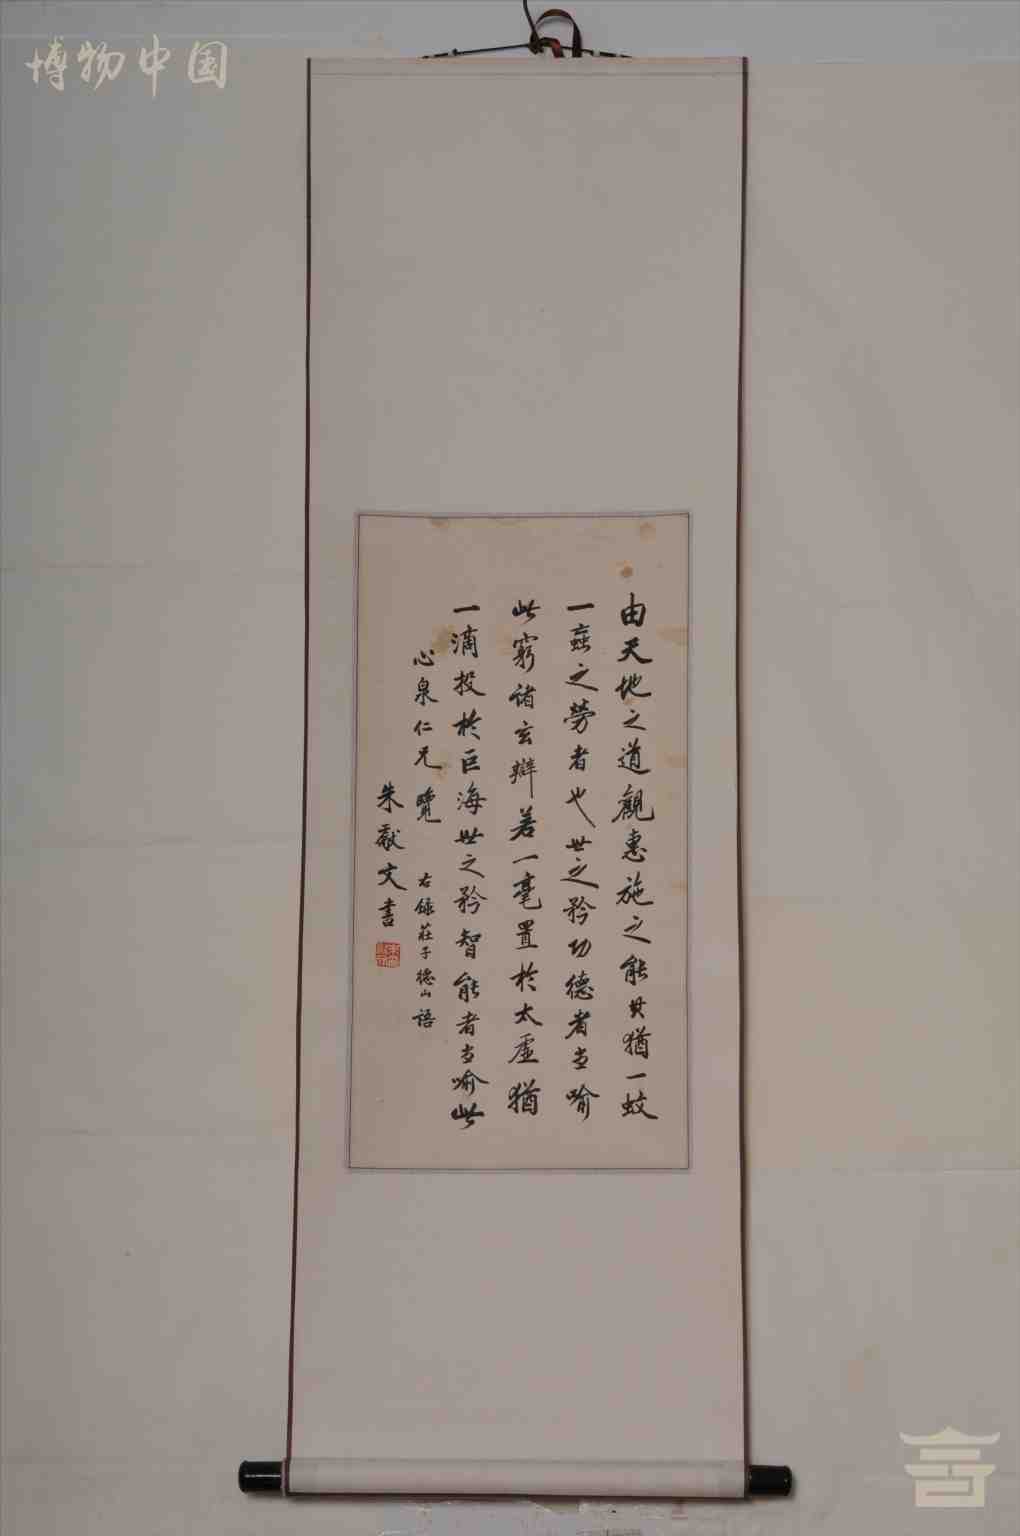 博物中国
由天地之道觀惠施之能其猶一蚊
一䖟之勞者也世之矜功德者當喻
此窮諸玄辯若一毫置於太虛猶
一滴投於巨海世之矜智能者當喻此
心泉仁兄 覽 右錄莊子德山語
朱獻文書